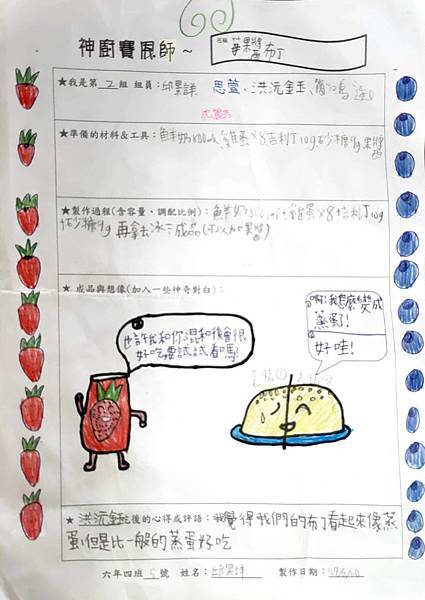 神廚賽恩師~
名稱 莓果醬布丁
★我是第 2 組 組員:邱昱誶 思萱、洪沅金玉、
★準備的材料&工具:鮮奶800ml 雞蛋×8吉利丁10g砂糖9g果醬
★製作過程(含容量、調配比例):鮮奶800ml+雞蛋×8吉利丁10g
+砂糖9g 再拿去冰=成品(可以加果醬)
★ 成品與想像(加入一些神奇對白):
也許我和你混和後會很
好吃,要試試看嗎?
啊!我怎麼變成
蒸蛋了!
好哇!
★ 洪沅鈺吃後的心得或評語:我覺得我們的布丁看起來像蒸
蛋,但是比一般的蒸蛋好吃
六年四班 5 號 姓名: 製作日期: